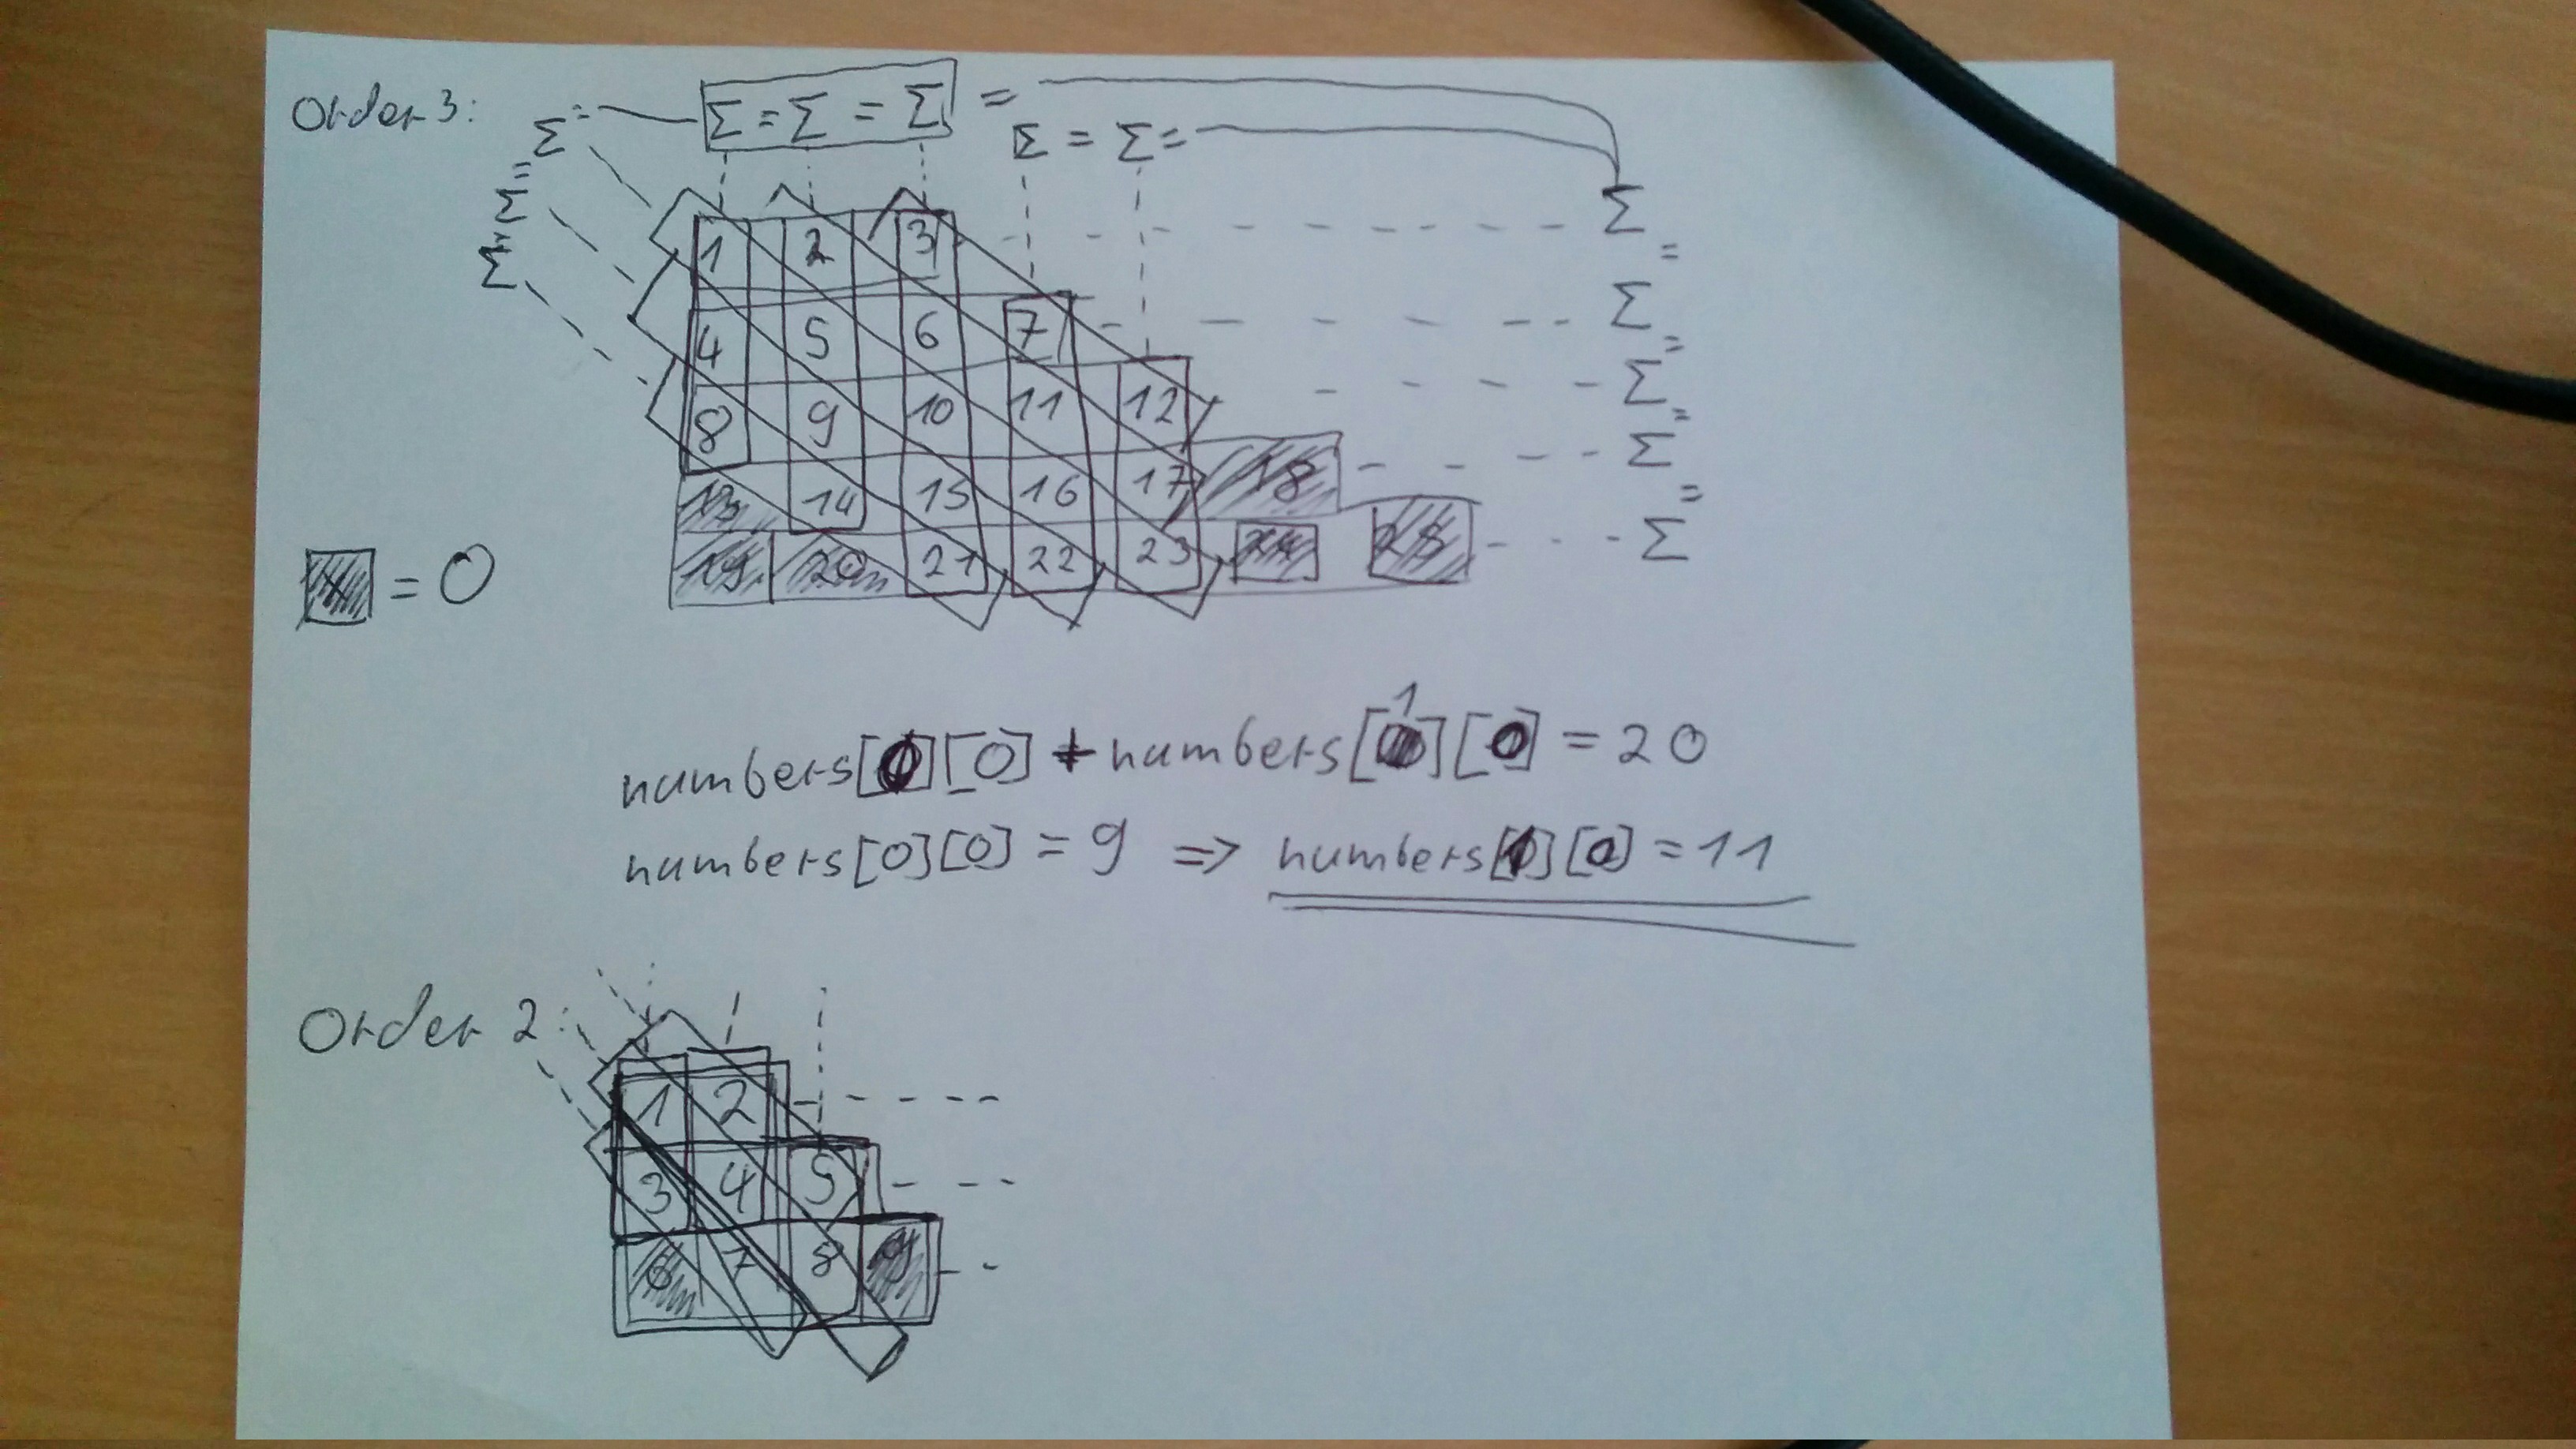 Order 3:
Σ = Σ = Σ = Σ =
Σ = Σ = Σ =
Σ =
Σ =
1 2 3 Σ =
4 5 6 7 Σ =
8 9 10 11 12 Σ =
13 14 15 16 17 18 Σ =
19 20 21 22 23 24 25 Σ
= 0
numbers[0][0] + numbers[1][0] = 20
numbers[0][0] = 9 => numbers[1][0] = 11
Order 2:
1 2
3 4 5
6 7 8 9